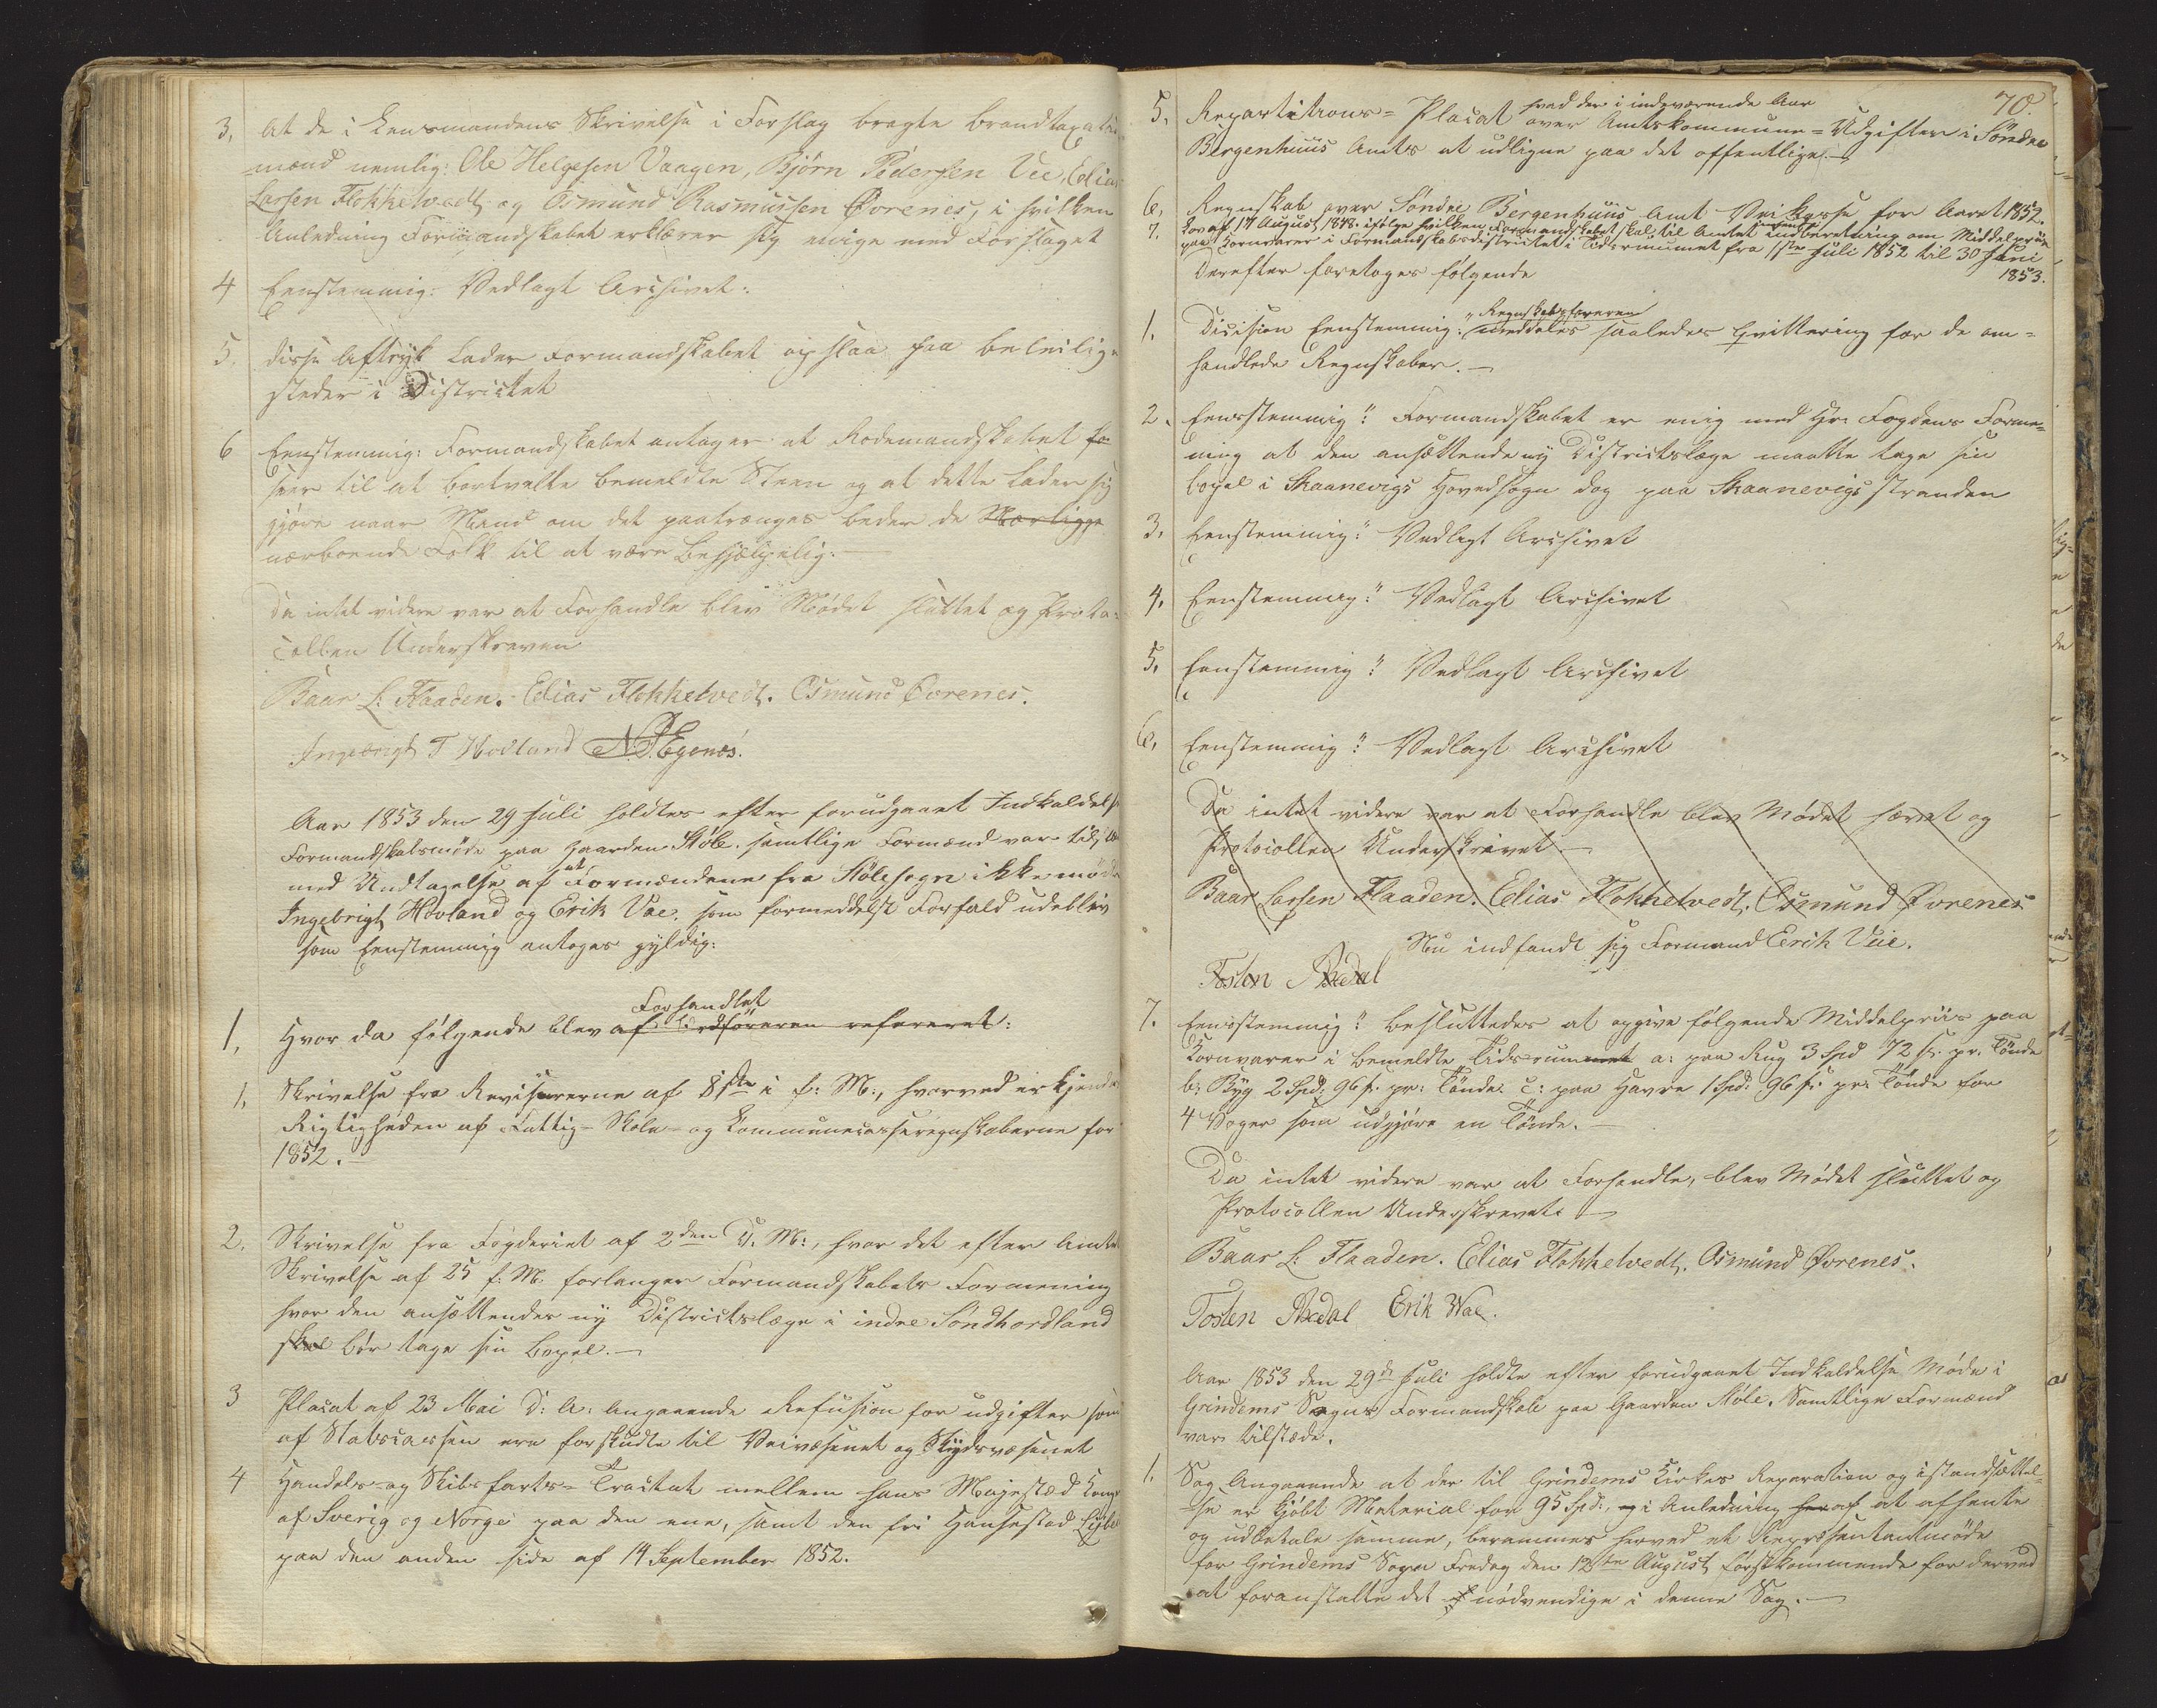 3, At de i Lensmandens Skrivelse i Forslag bragte Brandtaxations
mænd nemlig: Ole Helgesen Vaagen, Bjørn Pedersen Vee, Elias
Larsen Flokketvedt og Osmund Rasmussen Øvrenes, i hvilken
Anledning Formandskabet erklærer sig enige med Forslaget
4 Eenstemmig: Vedlagt Archivet.
5. disse Aftryk lader Formandskabet opslaa paa beleilige
steder i Districtet
6 Eenstemmig: Formandskabet antager at Rodemandskabet for
seer til at bortvælte bemeldte Steen og at dette lader sig
gjøre naar Mand om det paatrænges beder de Nærligge
nærboende Folk til at være behjælpelig.—
Da intet videre var at Forhandle blev Mødet sluttet og Proto=
collen Underskreven
Baar L: Flaaden. Elias Flokketvedt. Osmund Øvrenes.
Ingebrigt T Hovland N. Egenæs.
Aar 1853 den 29 Juli holdtes efter forudgaaet Indkaldelse
Formandskabsmøde paa Gaarden Høle. samtlige Formænd var tilstæde
med Undtagelse af at Formændene fra Hølesogn ikke mødte
Ingebrigt Hovland og Erik Vae. som formeddelst Forfald udeblev
som Eenstemmig antoges gyldig:
Forhandlet
1, Hvor da følgende blev af Ordføreren refereret:
1, Skrivelse fra Revisorerne af 8ste i f: M:, hvorved erkjendes
Rigtigheden af Fattig- Skole- og Kommunecasseregnskaberne for
1852.—
2, Skrivelse fra Fogderiet af 2den d. M:, hvor det efter Amts
Skrivelse af 25 f: M: forlanger Formandskabets Formening
hvor den ansættendes ny Districtslæge i indre Søndhordland
skal bør tage sin Bopæl.—
3 Placat af 23 Mai d: A: angaaende Refusion for udgifter som
af Statscassen ere forskudte til Veivæsenet og Skydsvæsenet
4 Handels- og Skibsfarts= Tractat mellem hans Majestæd Kongen
af Sverig og Norge paa den ene, samt den fri Hansestad Lybek
paa den anden side af 14 September 1852.
70.
hvad der i indeværende Aar
5. Repartitions= Placat over Amtskommune= Udgifter i Søndre
Bergenhuus Amts at udligne paa det offentlige.—
6, Regnskab over Søndre Bergenhuus Amt Veikasse for Aaret 1852.
7. Lov af 17 August 1848. ifølge hvilken Formandskabet skal til Amtet indberetning om Middelpriis
paa Kornvarer i Formandskabsdistrictet i Tidsrummet fra 1ste Juli 1852 til 30 Juni
1853.
Derefter foretoges følgende
Regnskabsføreren
1. Dicision Eenstemmig: meddeles saaledes Qvittering for de om=
handlede Regnskaber.—
2. Eenstemmig: Formandskabet er enig med Hr. Fogdens Forme=
ning at den ansættende ny Districtslæge maatte tage sin
bopæl i Skaanevigs Hovedsogn dog paa Skaanevigs stranden
3, Eenstemmig: Vedlagt Archivet
4, Eenstemmig: Vedlagt Archivet
5, Eenstemmig: Vedlagt Archivet
6, Eenstemmig: Vedlagt Archivet
Da intet videre var at Forhandle blev Mødet hævet og
Protocollen Underskrivet.—
Baar Larsen Flaaden. Elias Flokketvedt. Osmund Øvrenes
Nu indfandt sig Formand Erik Vae.
Tosten Aadal
7. Eenstemmig: besluttedes at opgive følgende Middelpriis paa
Kornvarer i bemeldte Tidsrummet a: paa Rug 3 Spd 72 s. pr. Tønde
b: Byg 2 Spd: 96 s. pr: Tønde. c: paa Havre 1 Spd: 96 s. pr: Tønde for
4 Voger som udgjøre en Tønde.—
Da intet videre var at Forhandle, blev Mødet sluttet og
Protocollen Underskrevet.—
Baar L: Flaaden. Elias Flokketvedt. Osmund Øvrenes.
Tosten Aadal Erik Wae.
Aar 1853 den 29de Juli holdte efter forudgaaet Indkaldelse Møde i
Grindems Sogns Formandskab paa Gaarden Høle. Samtlige Formænd
var tilstæde.
1. Sag Angaaende at der til Grindems Kirkes Reparation og istandsættel=
se er kjøbt Material for 95 Spd:, og i Anledning heraf at afhente
og udbetale samme, berammes herved et Repræsentantmøde
for Grindems Sogn Fredag den 12te August førstkommende for derved
at foranstalte det nødvendige i denne Sag.—